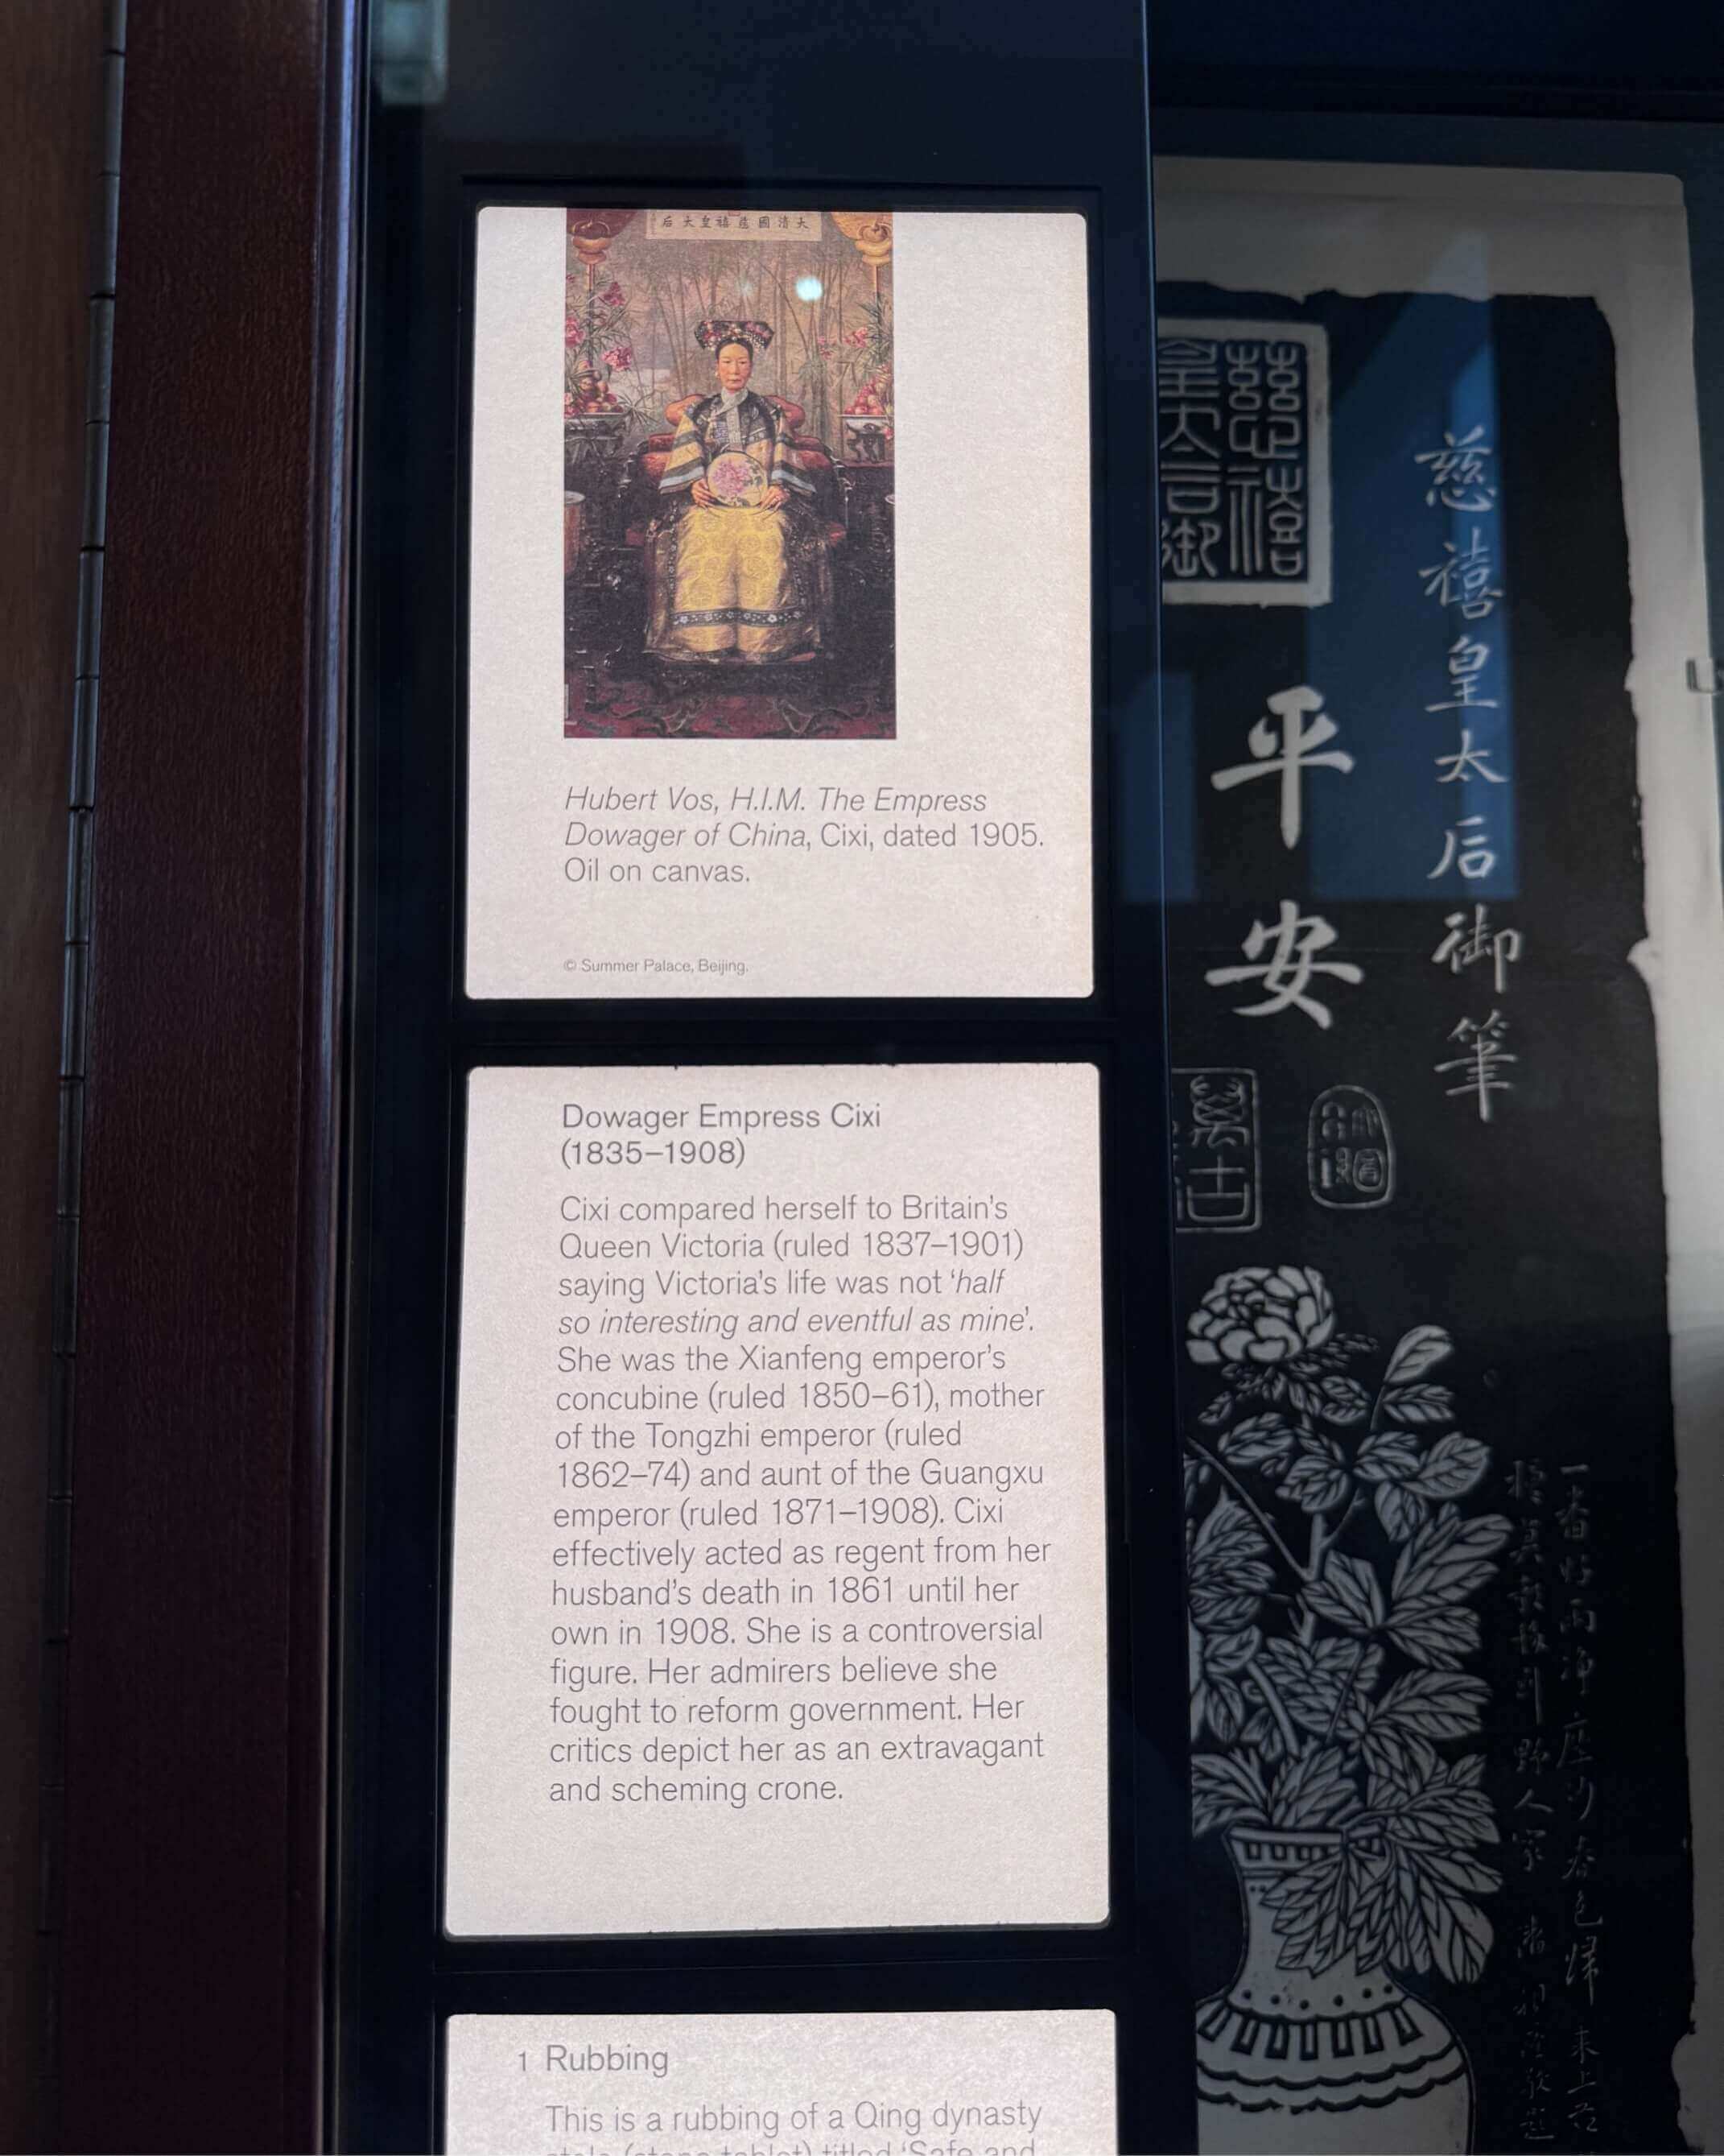 后大皇禧慈國清大
Hubert Vos, H.I.M. The Empress
Dowager of China, Cixi, dated 1905.
Oil on canvas.
© Summer Palace, Beijing.
Dowager Empress Cixi
(1835–1908)
Cixi compared herself to Britain's
Queen Victoria (ruled 1837–1901)
saying Victoria's life was not ‘half
so interesting and eventful as mine’.
She was the Xianfeng emperor's
concubine (ruled 1850–61), mother
of the Tongzhi emperor (ruled
1862–74) and aunt of the Guangxu
emperor (ruled 1871–1908). Cixi
effectively acted as regent from her
husband's death in 1861 until her
own in 1908. She is a controversial
figure. Her admirers believe she
fought to reform government. Her
critics depict her as an extravagant
and scheming crone.
1 Rubbing
This is a rubbing of a Qing dynasty
慈禧皇太后御筆
平安
慈禧
皇太后御